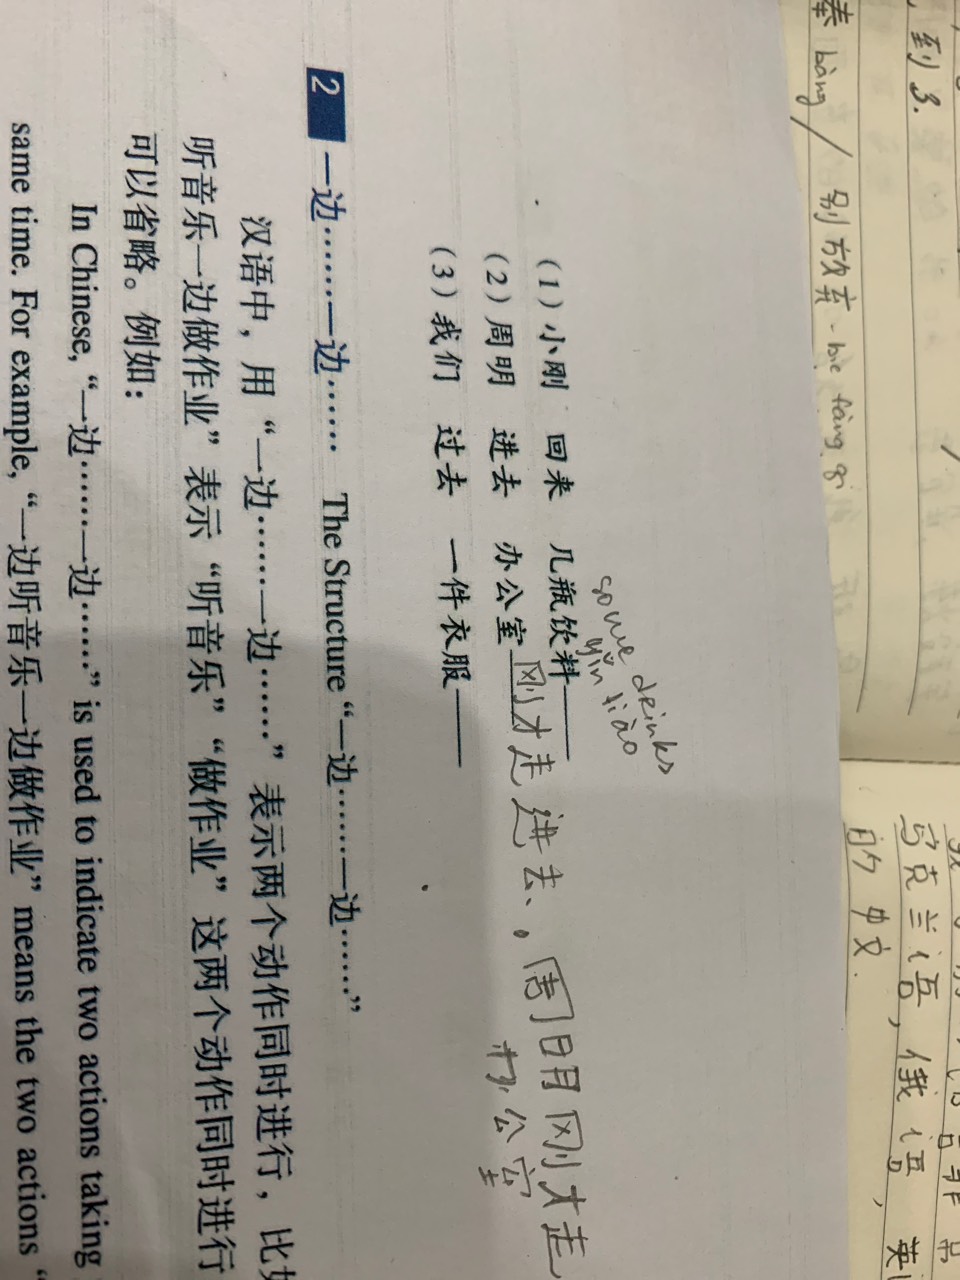 到 3.
bàng / 别放弃 - bié fàng qì
的中文.
乌克兰语, 俄语, 英
some drinks
yǐn liào
(1) 小刚 回来 几瓶饮料
(2) 周明 进去 办公室 刚才走进去、。周明刚才走
办公室
(3) 我们 过去 一件衣服
2 一边……一边…… The Structure “一边……一边……”
汉语中，用“一边……一边……”表示两个动作同时进行，比如
听音乐一边做作业”表示“听音乐”“做作业”这两个动作同时进行
可以省略。例如：
In Chinese, “一边……一边……” is used to indicate two actions taking
same time. For example, “一边听音乐一边做作业” means the two actions “